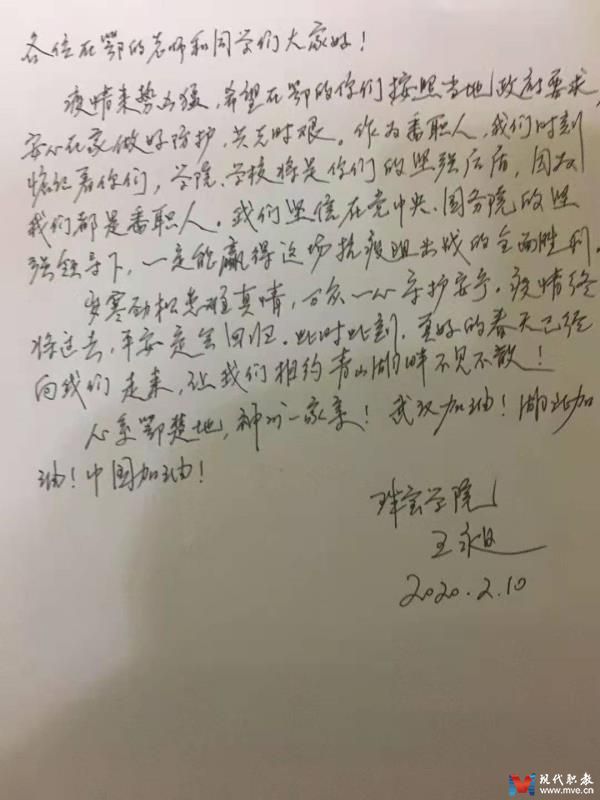 各位在鄂的老师和同学们大家好！
疫情来势凶猛，希望在鄂的你们按照当地政府要求，
安心在家做好防护，共克时艰。作为番职人，我们时刻
惦记着你们，学院、学校将是你们的坚强后盾，因为
我们都是番职人。我们坚信在党中央、国务院的坚
强领导下，一定能赢得这场抗疫阻击战的全面胜利。
岁寒劲松患难真情，万众一心守护安宁。疫情终
将过去，平安定会回归。此时此刻，美好的春天已经
向我们走来，让我们相约青山湖畔不见不散！
心系鄂楚地，神州一家亲！武汉加油！湖北加
油！中国加油！
珠宝学院
王永
2020.2.10
现代职教
www.mve.cn